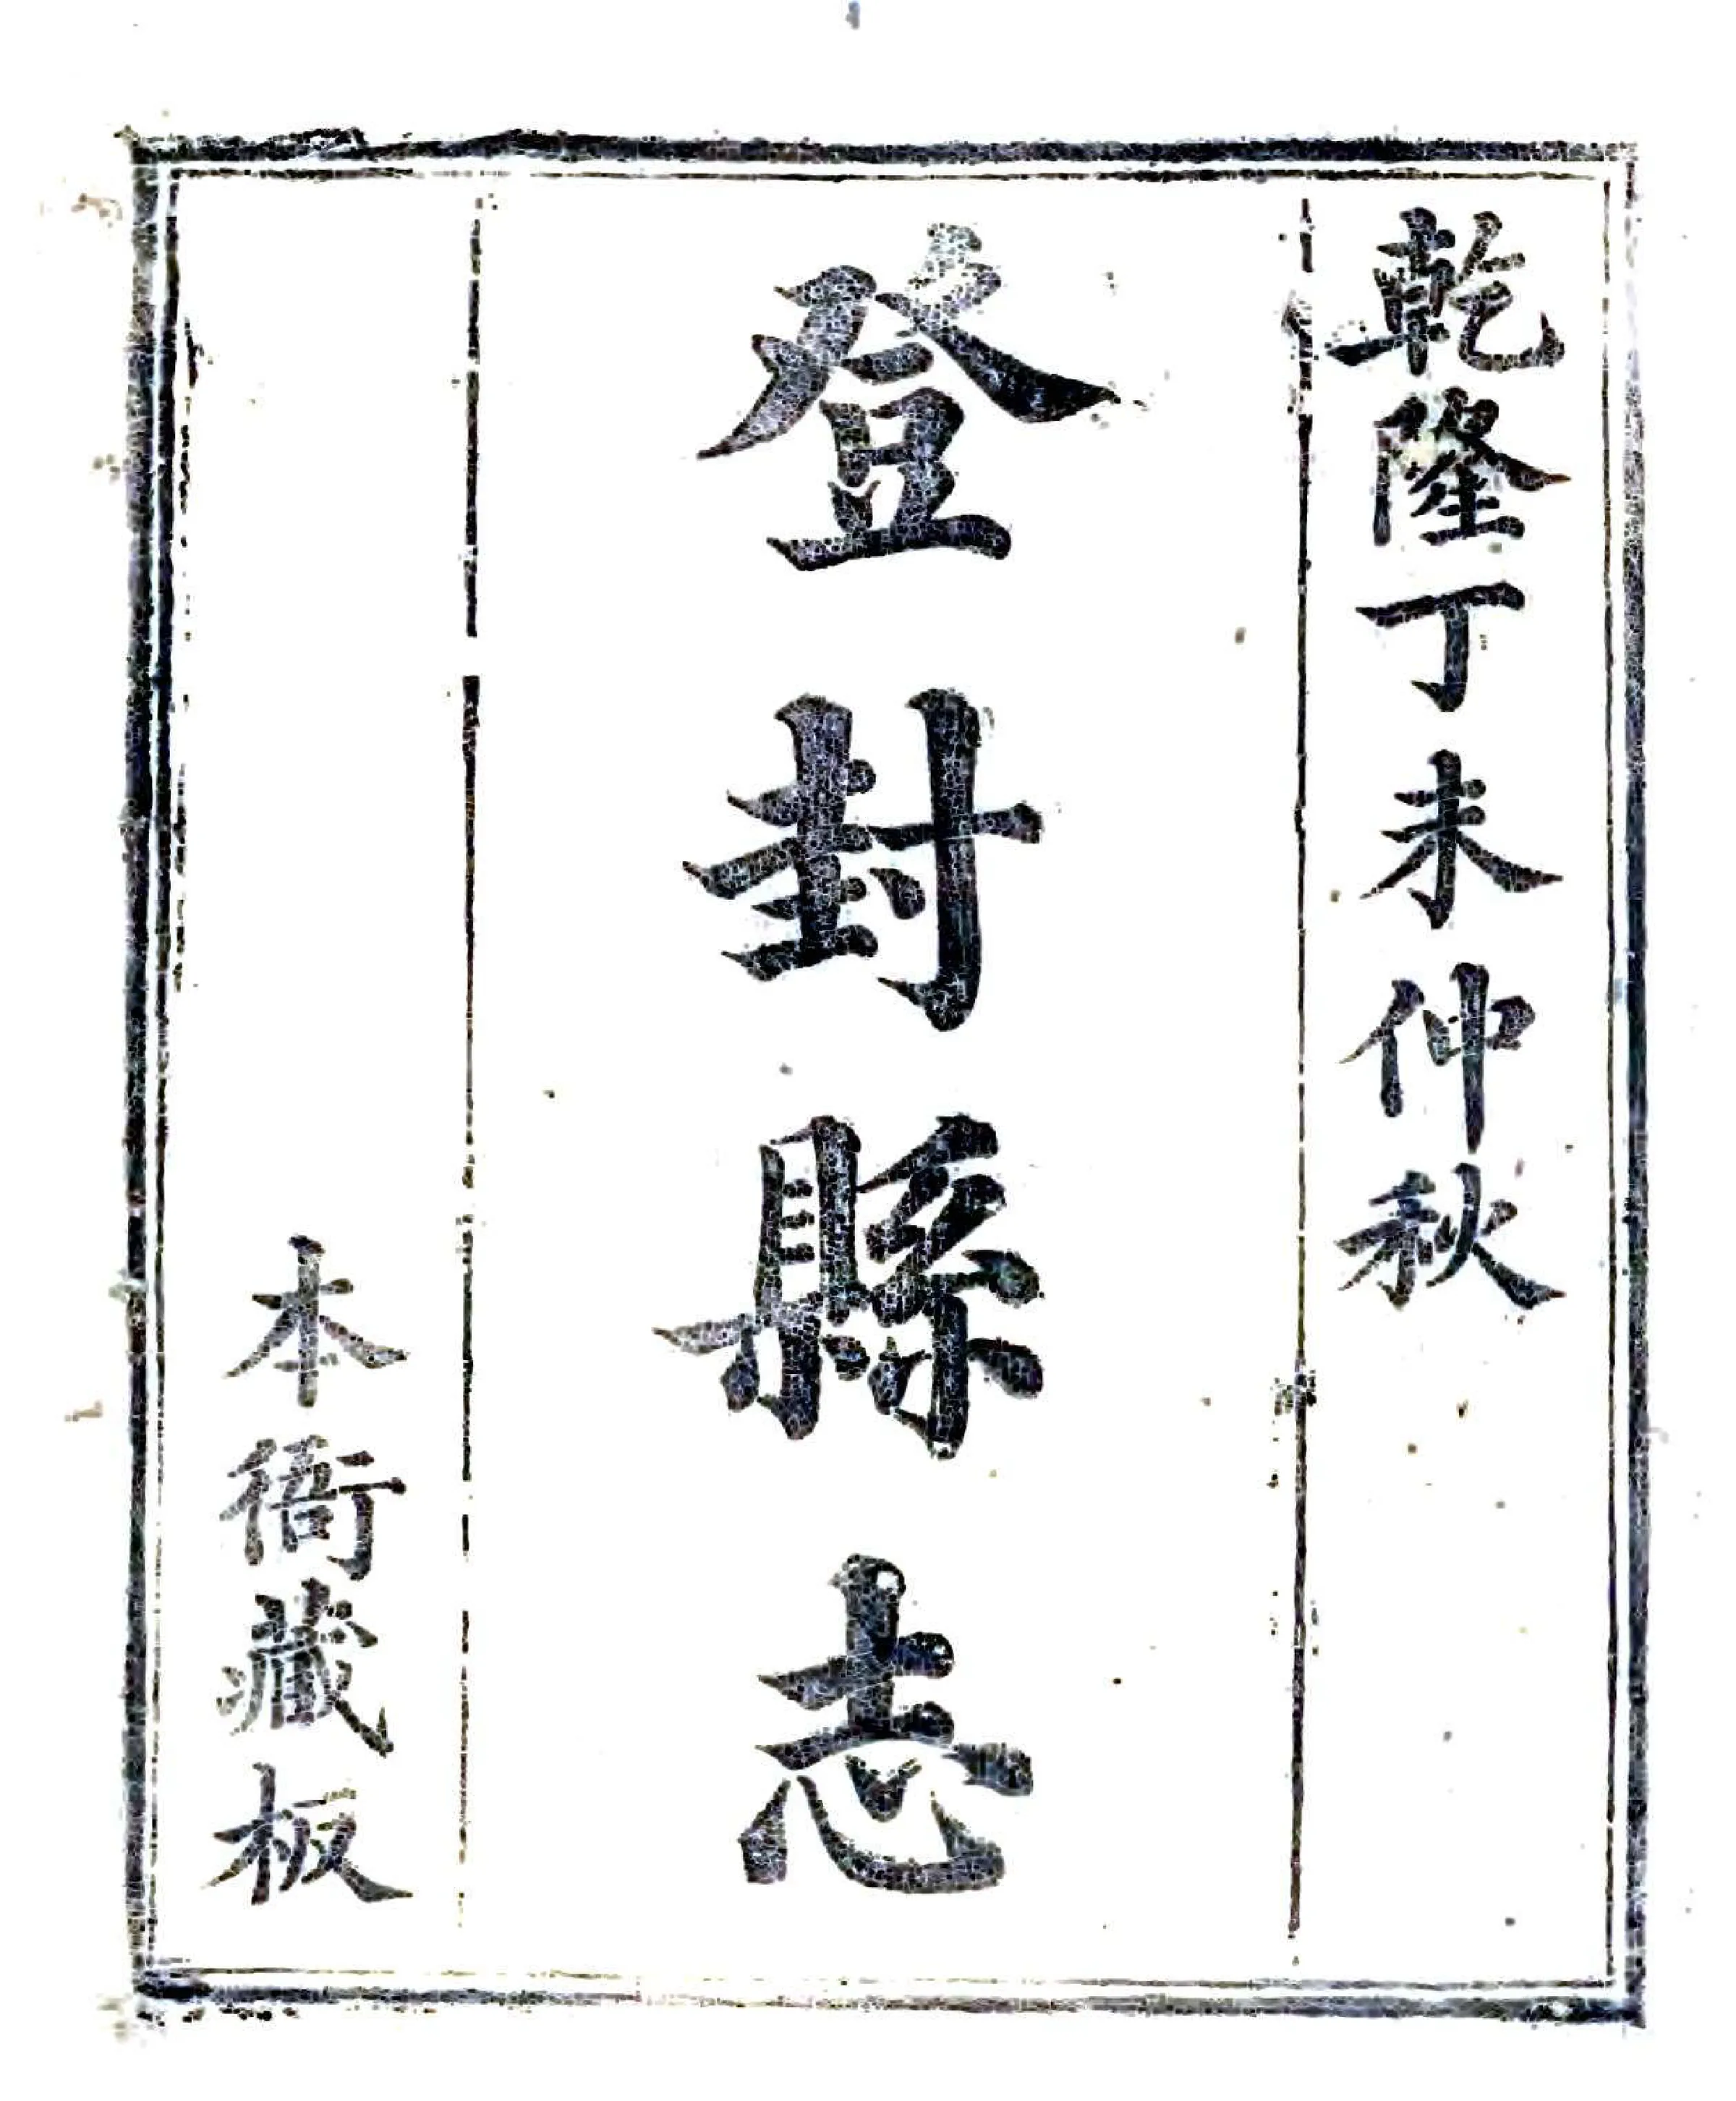 乾隆丁未仲秋
登封縣志
本衙藏板